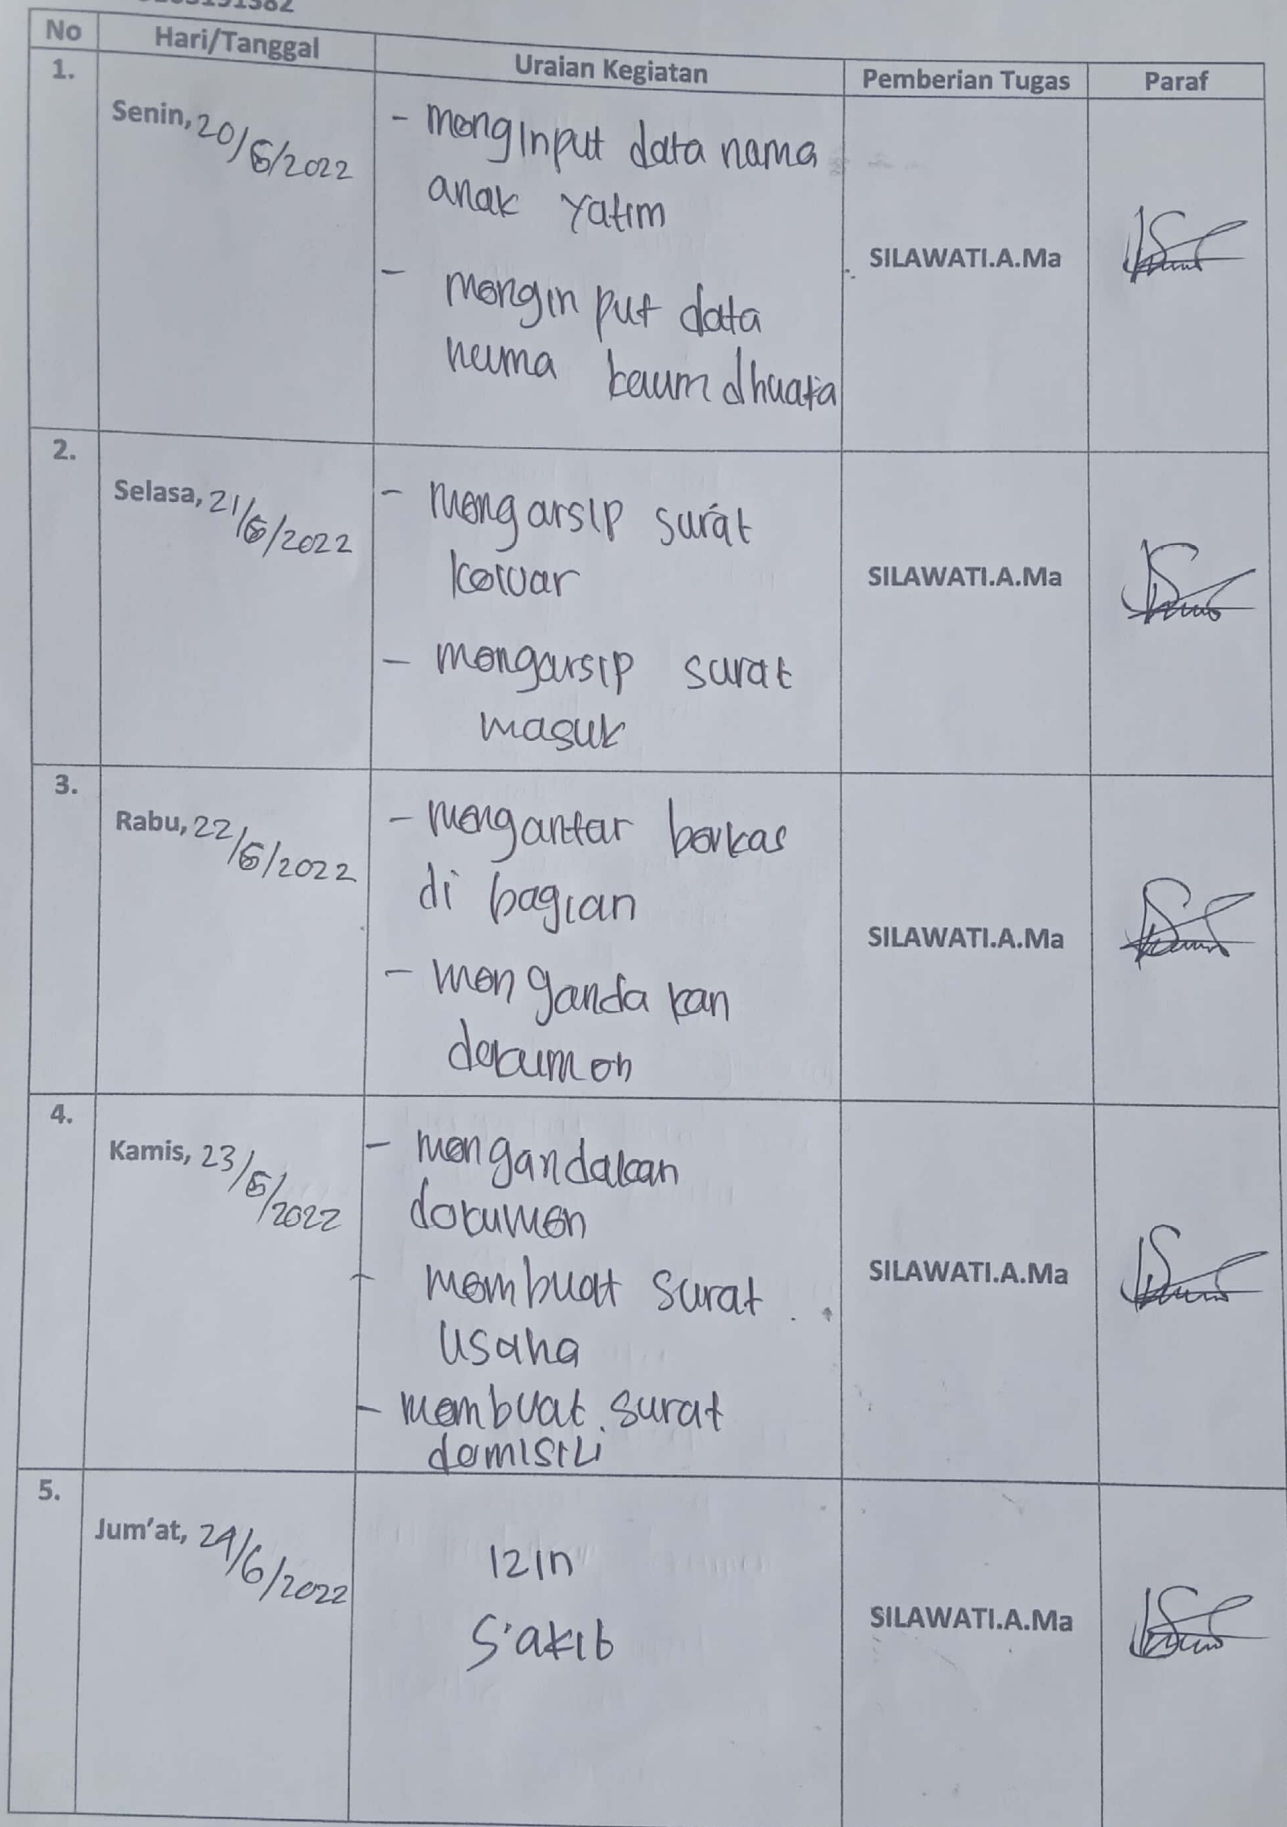 No Hari/Tanggal Uraian Kegiatan Pemberian Tugas Paraf
1.
Senin, 20/6/2022
- menginput data nama
anak yatim
- menginput data
nama kaum dhuafa
SILAWATI.A.Ma
2.
Selasa, 21/6/2022
- mengarsip surat
keluar
- mengarsip surat
masuk
SILAWATI.A.Ma
3.
Rabu, 22/6/2022
- mengantar berkas
di bagian
- mengandakan
dokumen
SILAWATI.A.Ma
4.
Kamis, 23/6/2022
- mengandakan
dokumen
- membuat surat
usaha
- membuat surat
domisili
SILAWATI.A.Ma
5.
Jum'at, 24/6/2022
Izin
SILAWATI.A.Ma